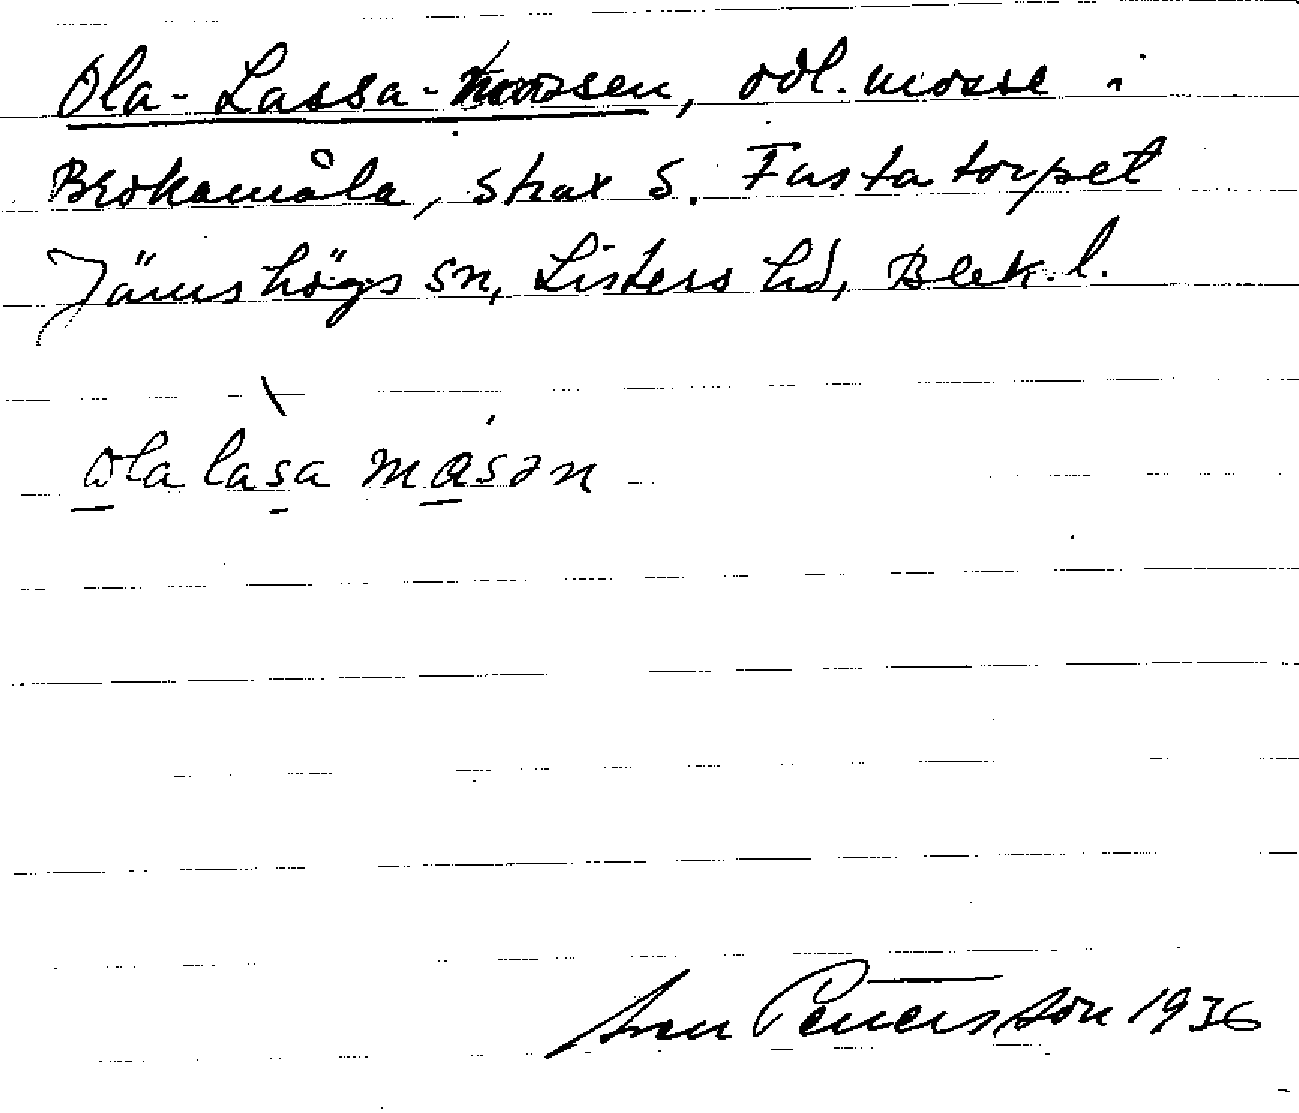 Ola-Lassa-mossen, odl. mosse i
Brokamåla, strax S. Fastatorpet
Jämshögs sn, Listers hd, Blek. l.
ola lasa masən
Sven Petersson 1936